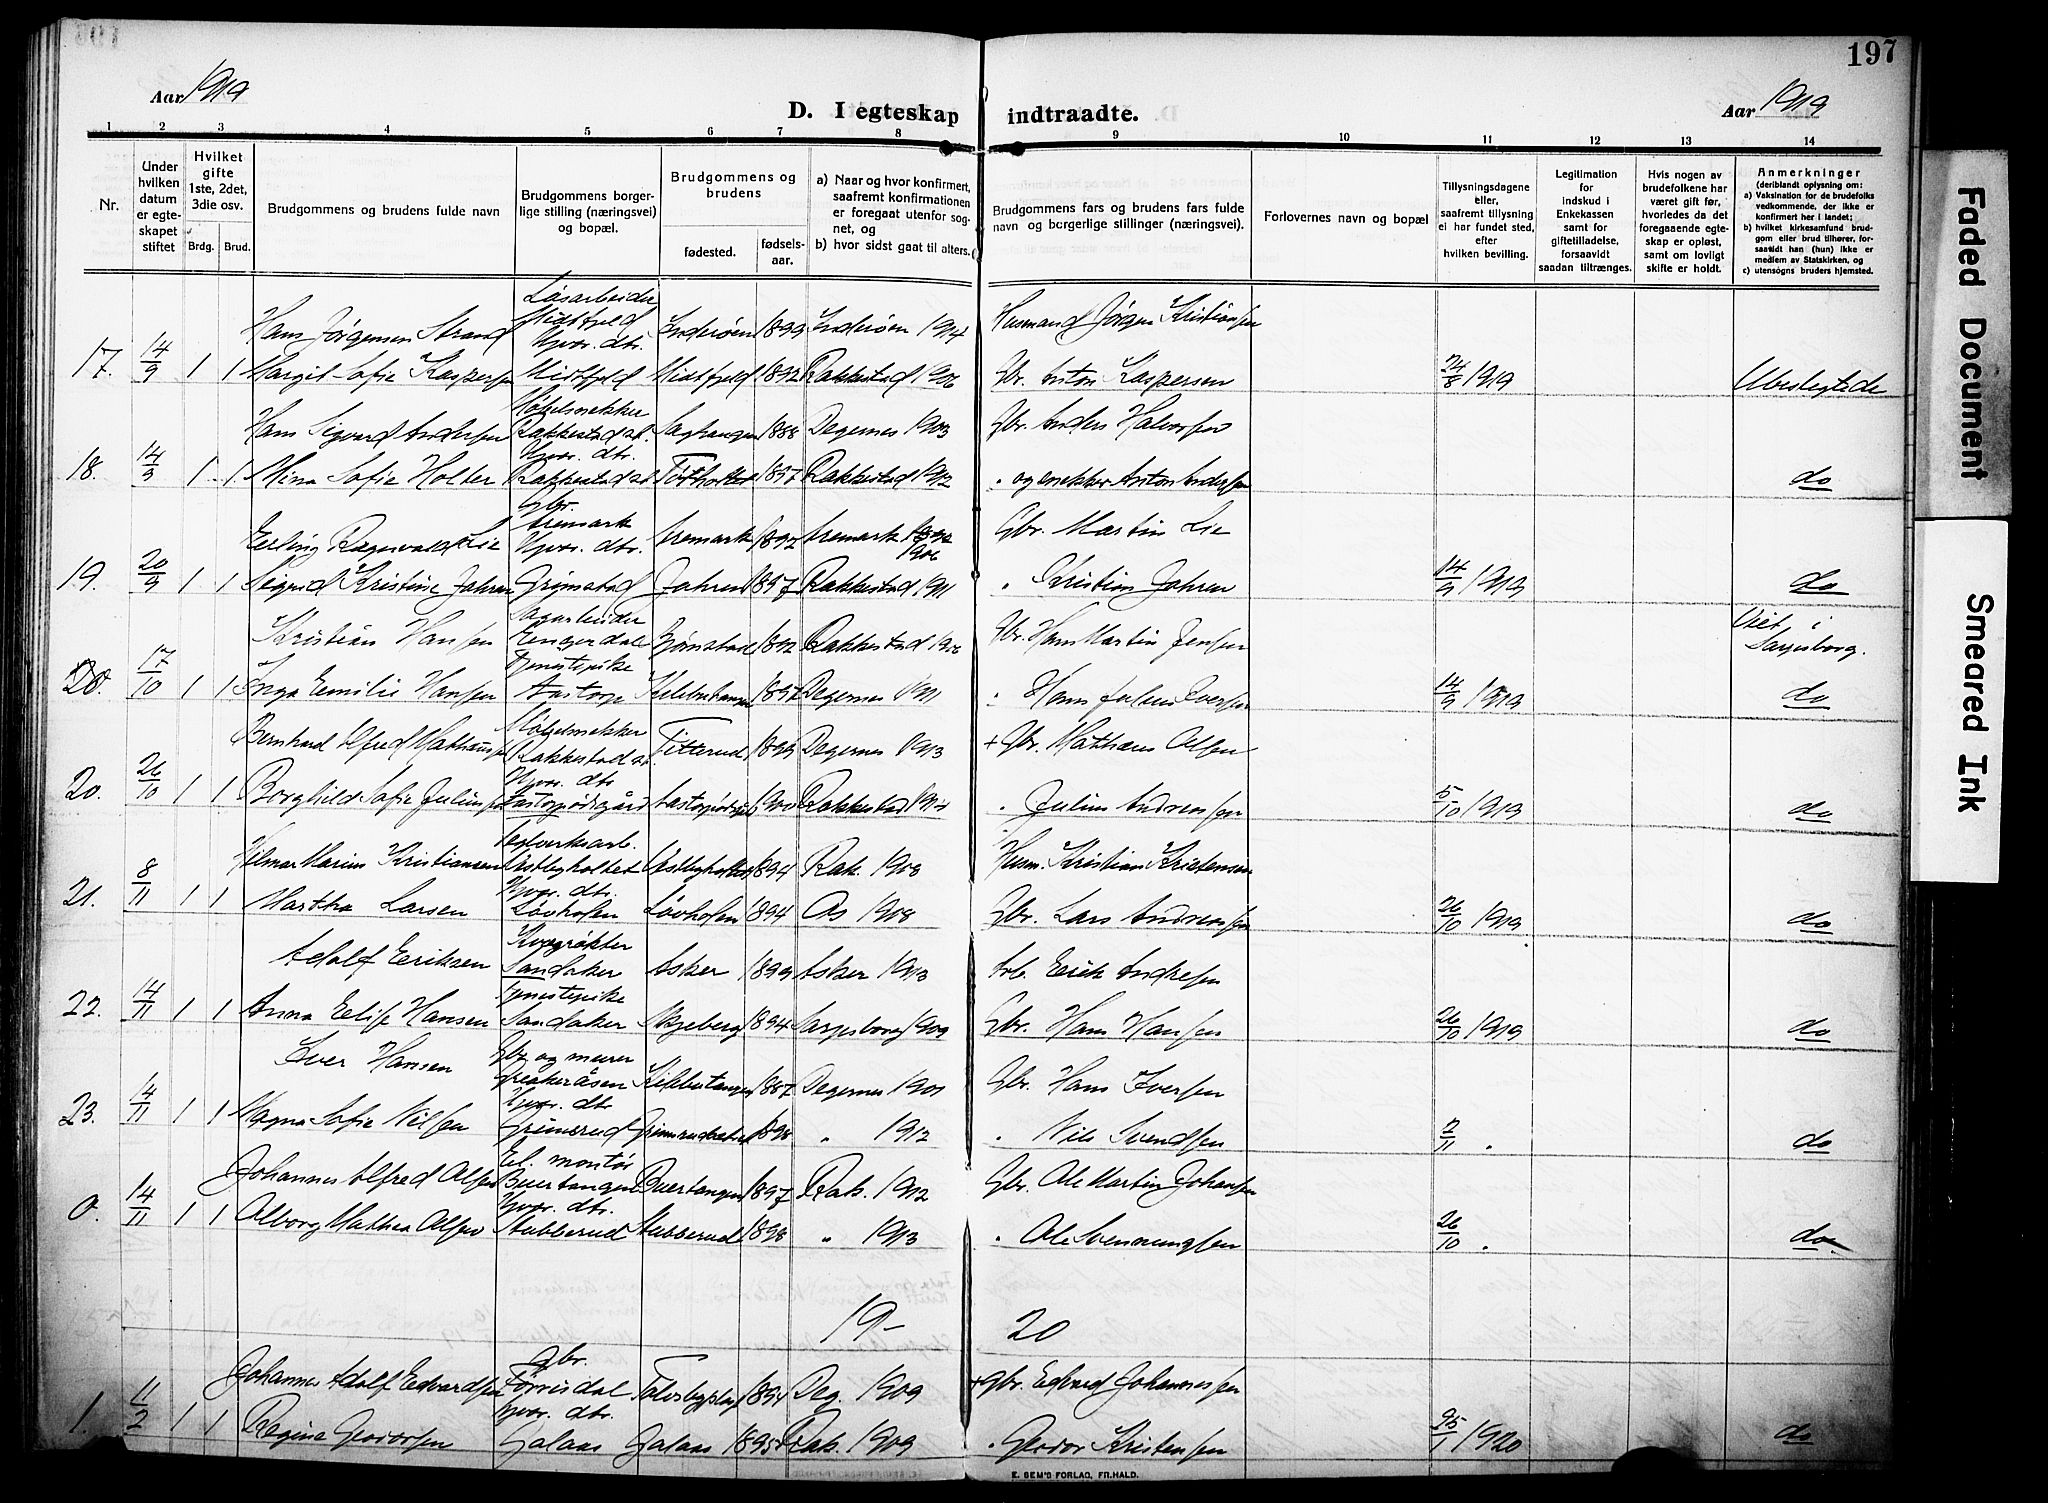 197
Aar 1919
D. I egteskap indtraadte.
Aar 1919
1 2 3 4 5 6 7 8 9 10 11 12 13 14
Nr.
Under hvilken datum er egteskapet stiftet
Hvilket gifte 1ste, 2det, 3die osv.
Brdg. Brud.
Brudgommens og brudens fulde navn
Brudgommens borgerlige stilling (næringsvei) og bopæl.
Brudgommens og brudens
fødested.
fødselsaar.
a) Naar og hvor konfirmert, saafremt konfirmationen er foregaat utenfor sognet, og
b) hvor sidst gaat til alters.
Brudgommens fars og brudens fars fulde navn og borgerlige stillinger (næringsvei).
Forlovernes navn og bopæl
Tillysningsdagene eller, saafremt tillysning ei har fundet sted, efter hvilken bevilling.
Legitimation for indskud i Enkekassen samt for giftetilladelse, forsaavidt saadan tiltrænges.
Hvis nogen av brudefolkene har været gift før, hvorledes da det foregaaende egteskap er opløst, samt om lovligt skifte er holdt.
Anmerkninger
(deriblandt oplysning om:
a) Vaksination for de brudefolks vedkommende, der ikke er konfirmert her i landet;
b) hvilket kirkesamfund brudgom eller brud tilhører, forsaavidt han (hun) ikke er medlem av Statskirken, og
c) utensogns bruders hjemsted.
Hans Jørgensen Strand Løsarbeider Midtfjeld Inderøen 1899 Inderøen 1914 Husmand Jørgen Kristiansen
17. 14/9 1 1 Margit Sofie Kaspersen Gbr. dtr. Midtfjeld Midtfjeld 1892 Rakkestad 1906 Gbr. Anton Kaspersen 24/8 1919 Ubeslegtede
Hans Sigvard Andersen Møbelsnekker Rakkestad st. 1888 Degernes 1903 Gbr. Anders Halvorsen
18. 14/9 1 1 Mina Sofie Holter Gbr. dtr. Rakkestad st. 1897 Rakkestad 1912 " og snekker Anton Andersen do
Erling Ragnvald Lie Gbr. Aremark Aremark 1892 Aremark 1906 Gbr. Martin Lie
19. 20/9 1 1 Sigrid Kristine Jahren Gbr. dtr. Grimstad Jahren 1897 Rakkestad 1911 " Kristian Jahren 14/9 1919 do
Kristian Hansen 1892 Rakkestad 1906 Gbr. Hans Martin Jensen Viet i Sarpsborg.
20. 17/10 1 1 Inga Emilie Hansen Tjenestepike Aastorp 1897 Degernes 1911 " Hans Julius Iversen 14/9 1919 do
Bernhard Alfred Mathiassen Møbelsnekker Rakkestad st. Fitterud 1899 Degernes 1913 + Gbr. Mathias Olsen
20. 26/10 1 1 Borghild Sofie Juliussen Gbr. dtr. 1900 Rakkestad 1914 " Julius Andreassen 5/10 1919 do
Hilmar Marius Kristiansen Østbyholtet Østbyholtet 1894 Rak. 1908 Husm. Kristian Kristensen
21. 8/11 1 1 Martha Larsen Gbr. dtr. Løvholen Løvholen 1894 Os 1908 Gbr. Lars Andreassen 26/10 1919 do
Adolf Eriksen Kvægrøkter Sandaker Asker 1899 Asker 1913 Arb. Erik Andresen
22. 14/11 1 1 Anna Elise Hansen Tjenestepike Sandaker Skjeberg 1894 Sarpsborg 1909 Gbr. Hans Hansen 26/10 1919 do
Iver Hansen Gbr. og murer 1887 Degernes 1901 Gbr. Hans Iversen
23. 14/11 1 1 Magna Sofie Nilsen Gbr. dtr. Grimsrud 1898 " 1912 " Nils Svendsen 2/11 " do
Johannes Alfred Olsen El. montør Buertangen Buertangen 1897 Rak. 1912 Gbr. Ole Martin Johansen
0. 14/11 1 1 Olborg Mathea Olsen Gbr. dtr. Stubberud Stubberud 1898 " 1913 " Ole Svenningsen 26/10 " do
19-20
Johannes Adolf Edvardsen gbr. Tørrisdal 1894 Deg. 1909 + gbr. Edvard Johannessen
1. 11/2 1 1 Regina Geodorsen gbr. dtr. Galaas Galaas 1895 Rak. 1909 " Geodor Kristensen 25/1 1920 do
E. SEM'S FORLAG, FR.HALD.
Faded Document
Smeared Ink